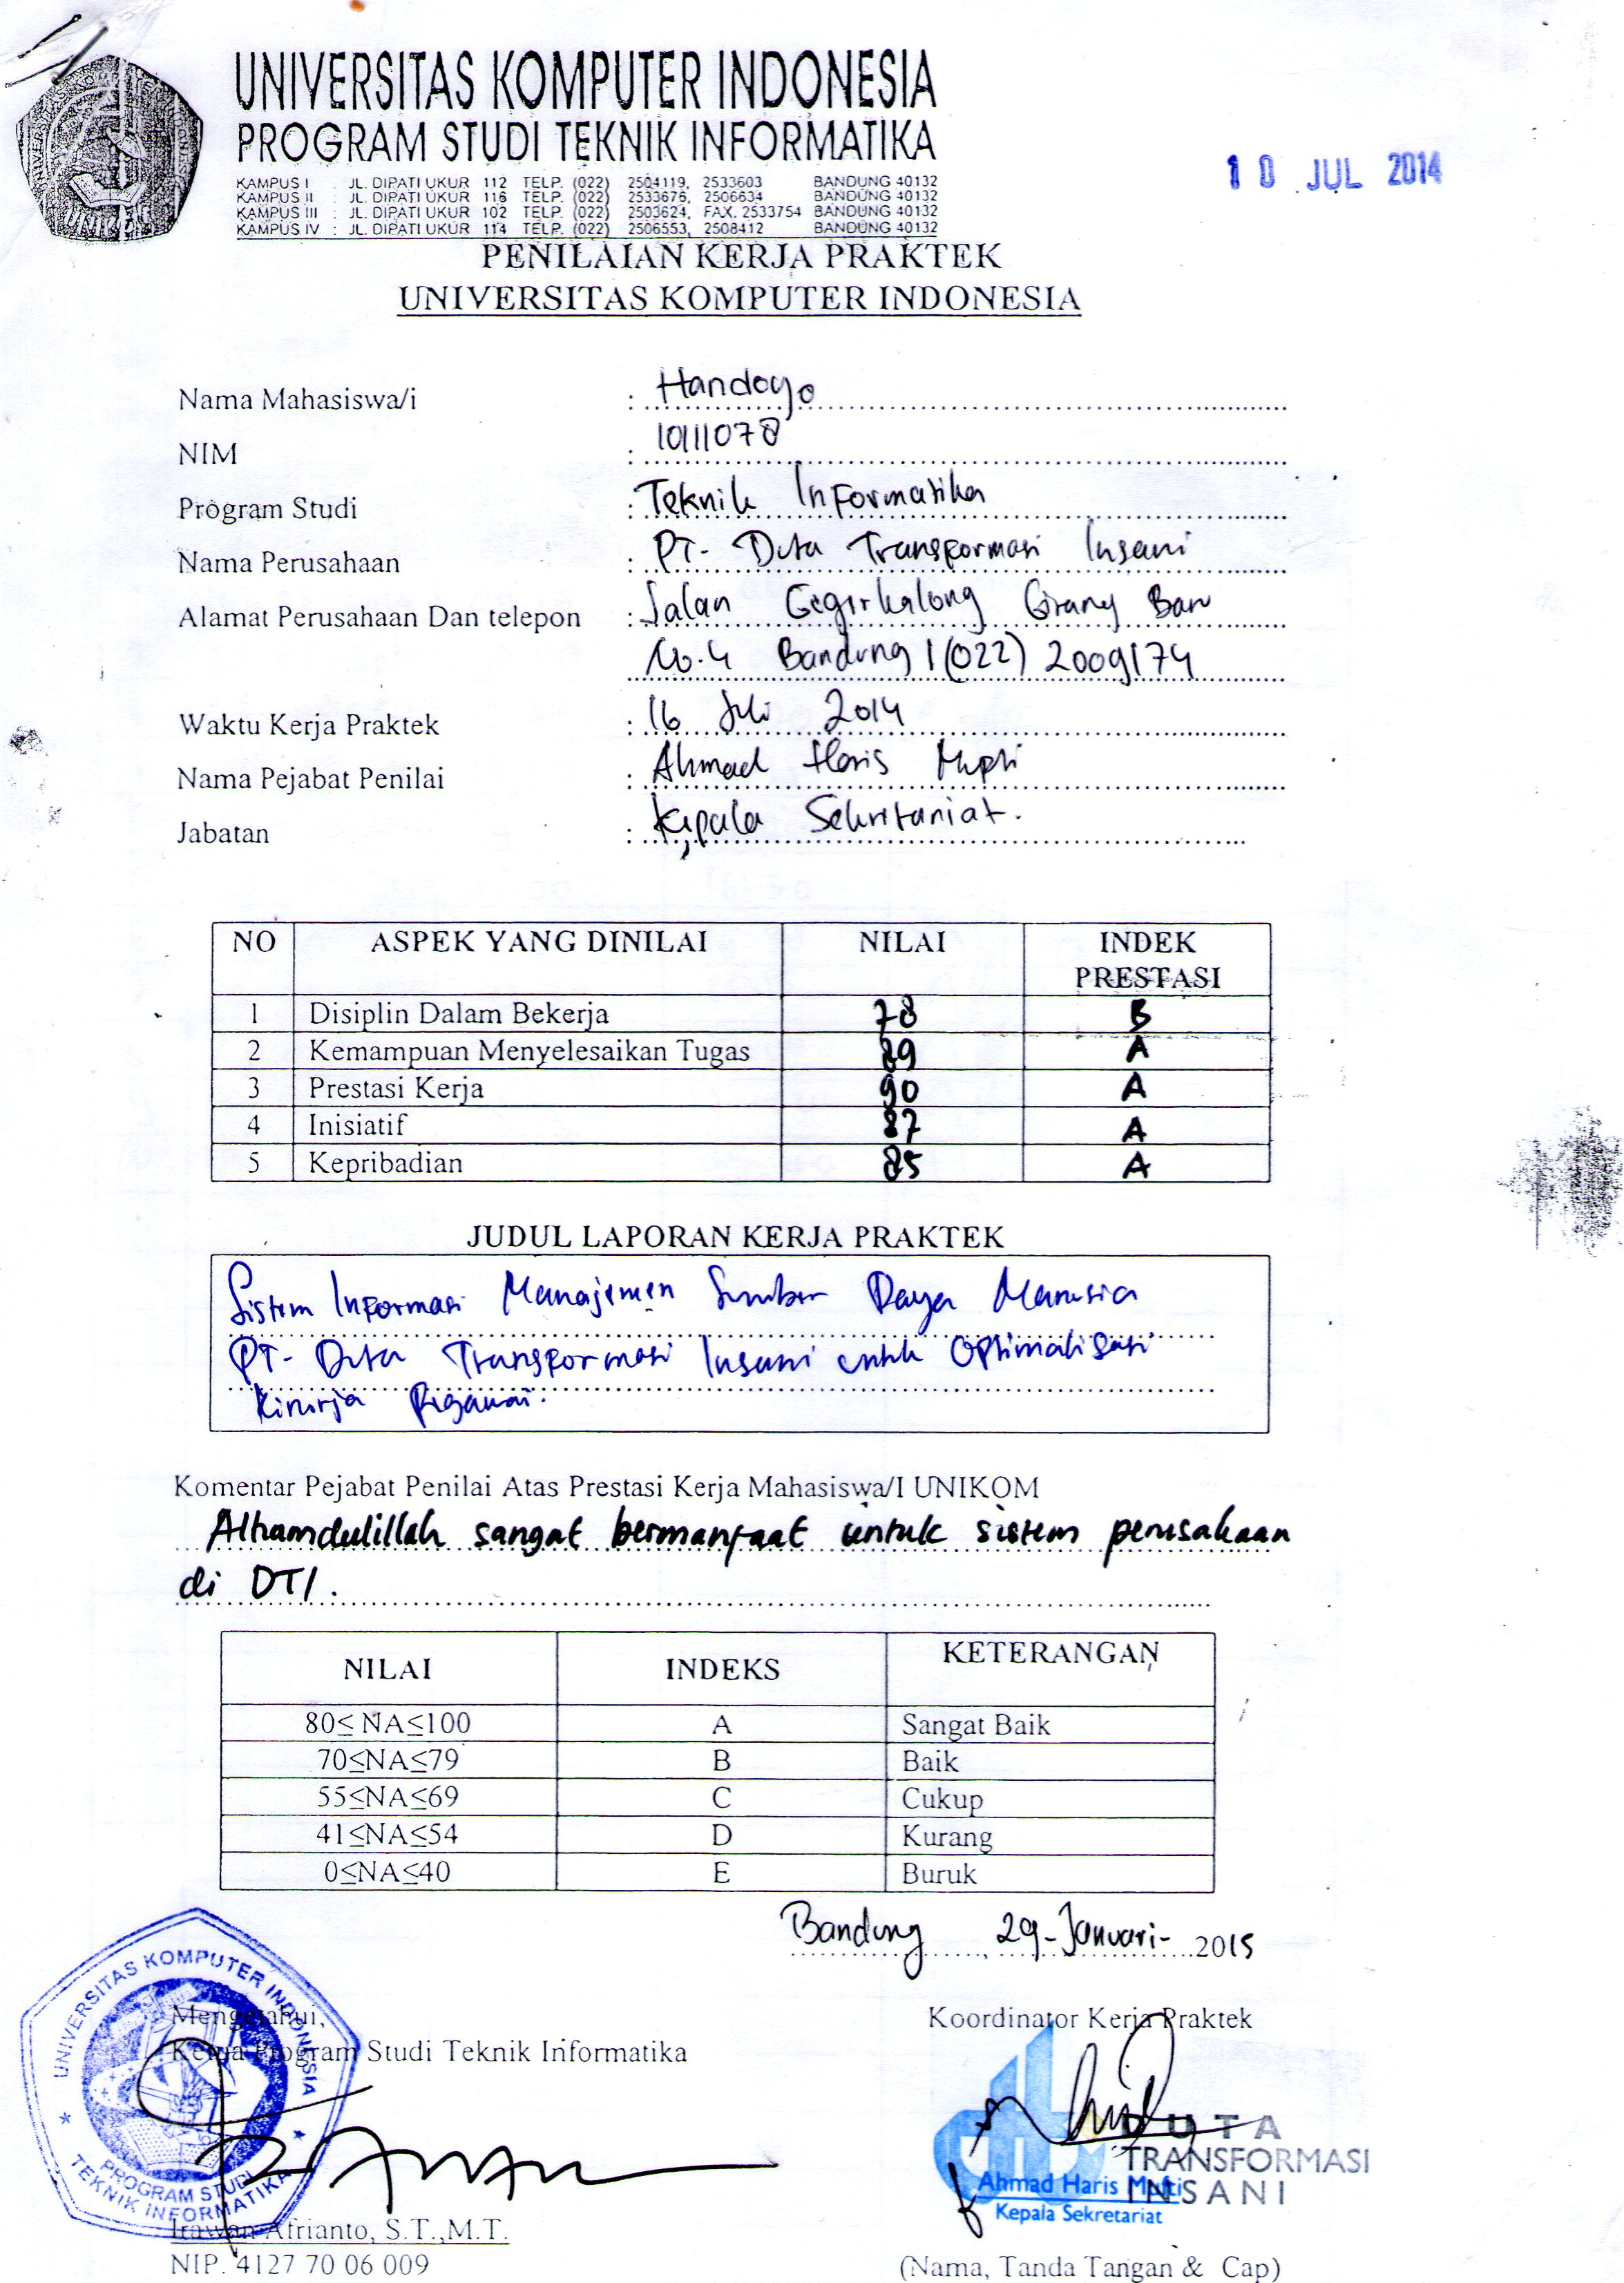 UNIVERSITAS KOMPUTER INDONESIA
PROGRAM STUDI TEKNIK INFORMATIKA
KAMPUS I : JL. DIPATI UKUR 112 TELP. (022) 2504119, 2533603 BANDUNG 40132
KAMPUS II : JL. DIPATI UKUR 116 TELP. (022) 2533676, 2506634 BANDUNG 40132
KAMPUS III : JL. DIPATI UKUR 102 TELP. (022) 2503624, FAX. 2533754 BANDUNG 40132
KAMPUS IV : JL. DIPATI UKUR 114 TELP. (022) 2506553, 2508412 BANDUNG 40132
10 JUL 2014
PENILAIAN KERJA PRAKTEK
UNIVERSITAS KOMPUTER INDONESIA
Nama Mahasiswa/i : Handoyo
NIM : 10111078
Program Studi : Teknik Informatika
Nama Perusahaan : PT. Duta Transformasi Insani
Alamat Perusahaan Dan telepon : Jalan Gegerkalong Girang Baru
No.4 Bandung / (022) 2009174
Waktu Kerja Praktek : 16 Juli 2014
Nama Pejabat Penilai : Ahmad Haris Mufti
Jabatan : Kepala Sekretariat.
NO ASPEK YANG DINILAI NILAI INDEK PRESTASI
1 Disiplin Dalam Bekerja 78 B
2 Kemampuan Menyelesaikan Tugas 89 A
3 Prestasi Kerja 90 A
4 Inisiatif 87 A
5 Kepribadian 85 A
JUDUL LAPORAN KERJA PRAKTEK
Sistem Informasi Manajemen Sumber Daya Manusia
PT. Duta Transformasi Insani untuk Optimalisasi
Kinerja Pegawai.
Komentar Pejabat Penilai Atas Prestasi Kerja Mahasiswa/I UNIKOM
Alhamdulillah sangat bermanfaat untuk sistem perusahaan
di DTI.
NILAI INDEKS KETERANGAN
80≤ NA≤100 A Sangat Baik
70≤NA≤79 B Baik
55≤NA≤69 C Cukup
41≤NA≤54 D Kurang
0≤NA≤40 E Buruk
Bandung, 29-Januari-2015
Mengetahui,
Ketua Program Studi Teknik Informatika
UNIVERSITAS KOMPUTER INDONESIA
PROGRAM STUDI
TEKNIK INFORMATIKA
Irawan Afrianto, S.T.,M.T.
NIP. 4127 70 06 009
Koordinator Kerja Praktek
DUTA
TRANSFORMASI
INSANI
Ahmad Haris Mufti
Kepala Sekretariat
(Nama, Tanda Tangan & Cap)